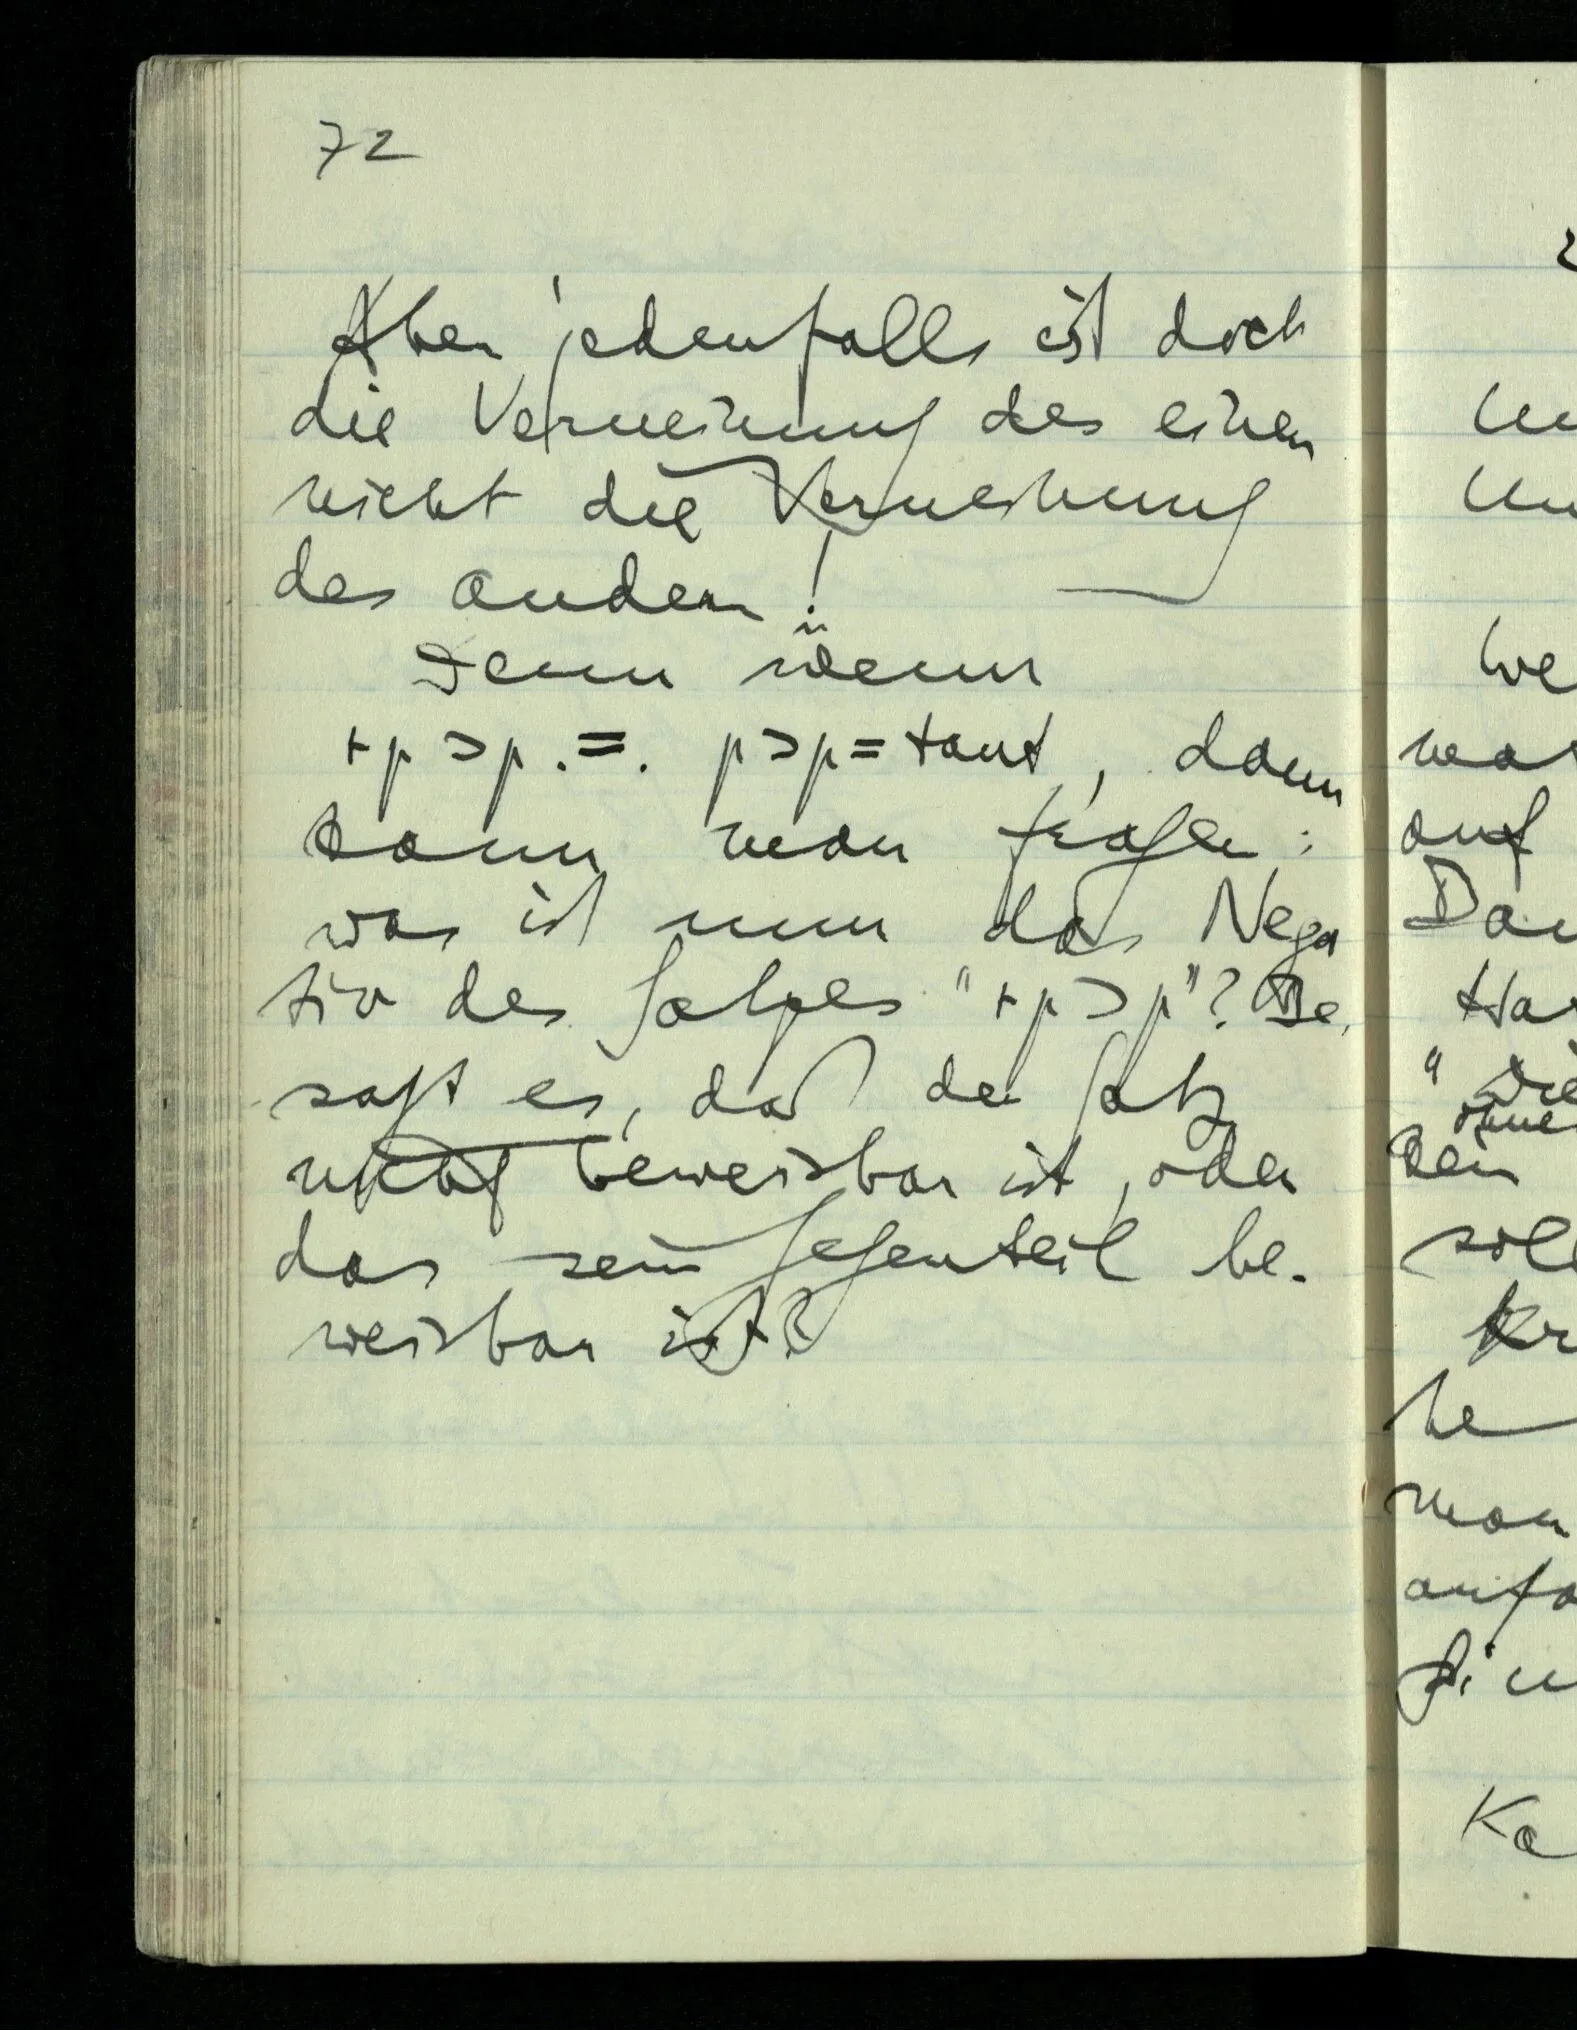 72
Aber jedenfalls ist doch
die Verneinung des einen
nicht die Verneinung
des andern!
Denn wenn
⊢p ⊃ p . = . p ⊃ p = taut, dann
kann man fragen:
was ist nun das Nega
tiv des Satzes "⊢p ⊃ p"? Be
sagt es, daß der Satz
nicht beweisbar ist, oder
das sein Gegenteil be-
weisbar ist?
auf
"Die
den